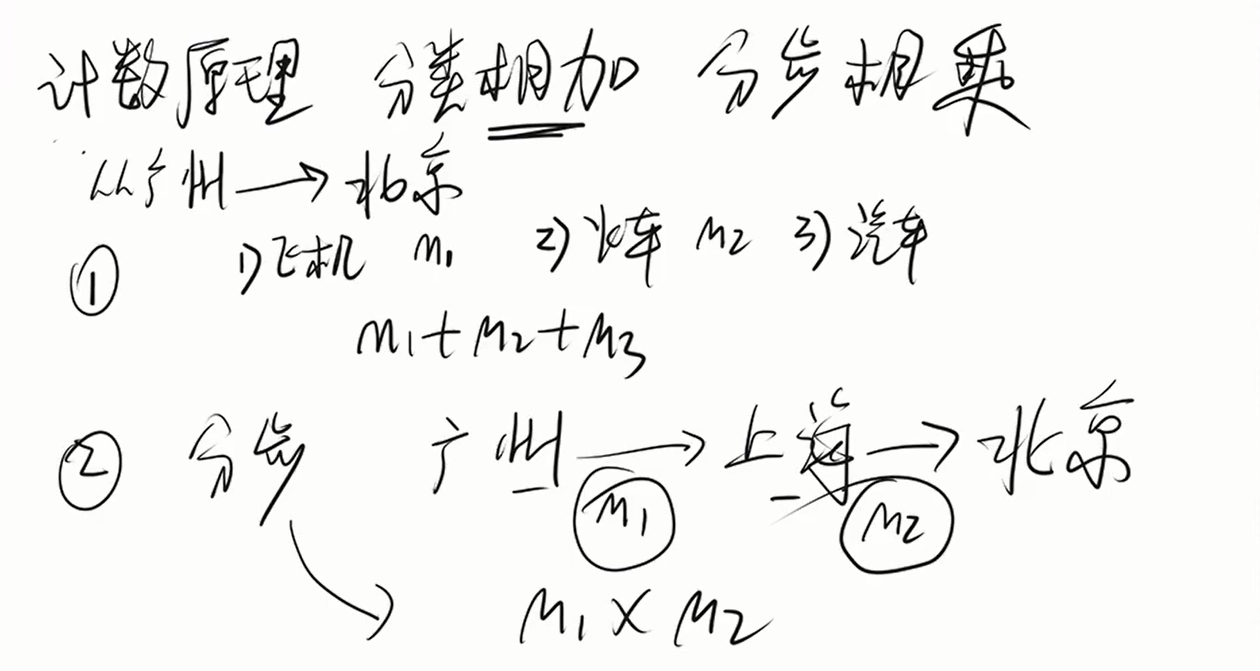 计数原理 分类相加 分步相乘
从广州→北京
① 1)飞机 m1 2)火车 m2 3)汽车
m1+m2+m3
② 分步 广州→上海→北京
m1 m2
m1×m2